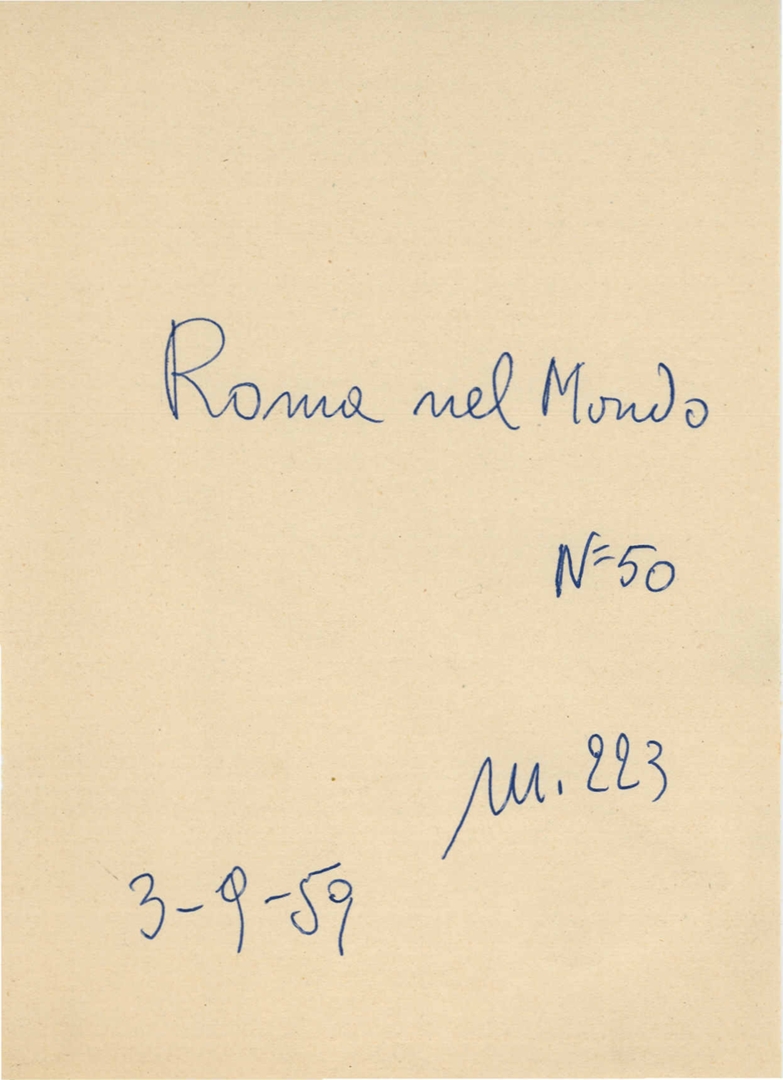 Roma nel Mondo
N=50
m. 223
3-9-59